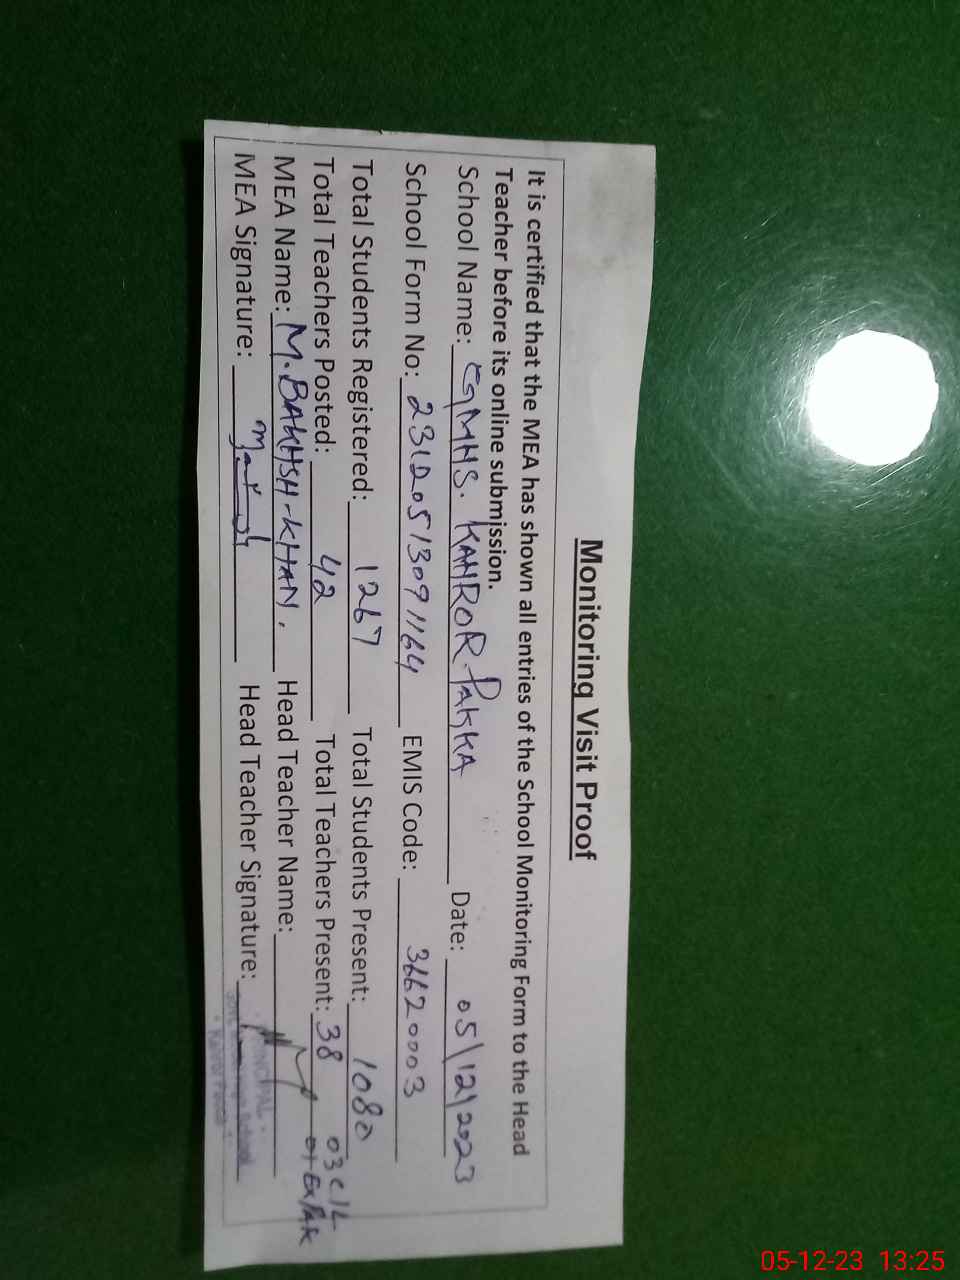 Monitoring Visit Proof
It is certified that the MEA has shown all entries of the School Monitoring Form to the Head
Teacher before its online submission.
School Name: GMHS. KAHROR. PAKKA Date: 05/12/2023
School Form No: 23120513091164 EMIS Code: 36620003
Total Students Registered: 1267 Total Students Present: 1080
Total Teachers Posted: 42 Total Teachers Present: 38 03 C/L
01 Ex/Pak
MEA Name: M. BAKHSH-KHAN. Head Teacher Name:
MEA Signature: Head Teacher Signature:
PRINCIPAL
School
05-12-23 13:25